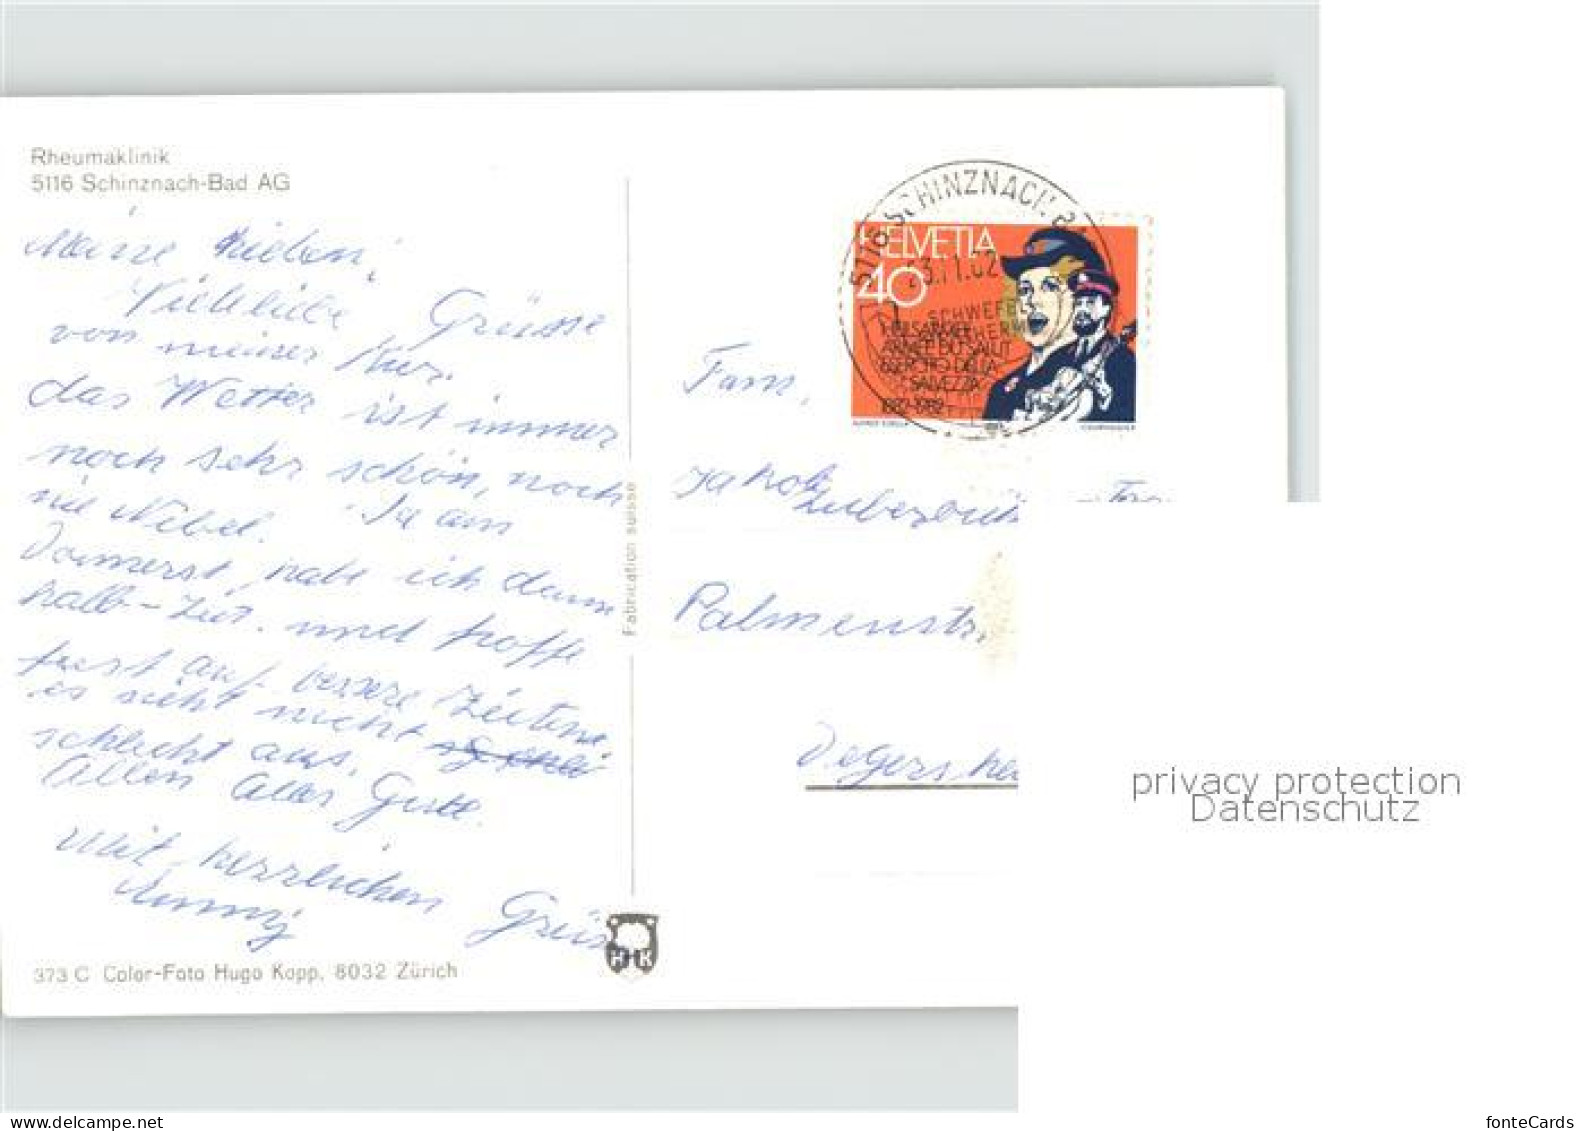 Rheumaklinik
5116 Schinznach-Bad AG
Meine Lieben,
Viel liebe Grüsse
von meiner Kur.
das Wetter ist immer
noch sehr schön, noch
nie Nebel. Ja am
Donnerst, habe ich dann
halb-Zeit. und hoffe
fest auf bessere Zeiten.
es sieht nicht
schlecht aus.
Allen alles Gute.
Mit herzlichen Grüs
Anny
373 C Color-Foto Hugo Kopp, 8032 Zürich
Fabrication suisse
HK
5116 SCHINZNACH B
23.11.82
SCHWEFEL
THERM
HELVETIA
40
HEILSARMEE
ARMÉE DU SALUT
ESERCITO DELLA
SALVEZZA
1882-1982
COURVOISIER
Fam.
Jakob
Palmenstr.
Degershei
privacy protection
Datenschutz
fonteCards